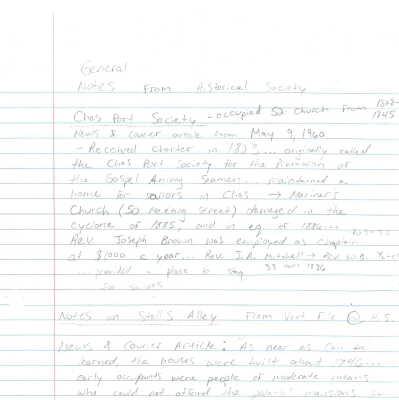 General
Notes From Historical Society
Chas Port Society - occupied 50 church from
1845
News & Courier article from May 9, 1960
- Received charter in originally called
the Chas Port Society for the Promotion of
the Gospel Among Seamen... maintained a
home for sailors in Chas → Mariner's
Church (50 Meeting Street) damaged in the
cyclone of 1885, and in eq. of 1886...
Rev. Joseph Brown was employed as chaplain
at $1000 a year... Rev. J. R. Mitchell → Rev. W.B.
a place to stay
for sailors
Notes on Stolls Alley From Vert File @ H.S.
News & Courier Article: As near as can be
learned, the houses were built about
early occupants were people of moderate means
who could not afford the mansions